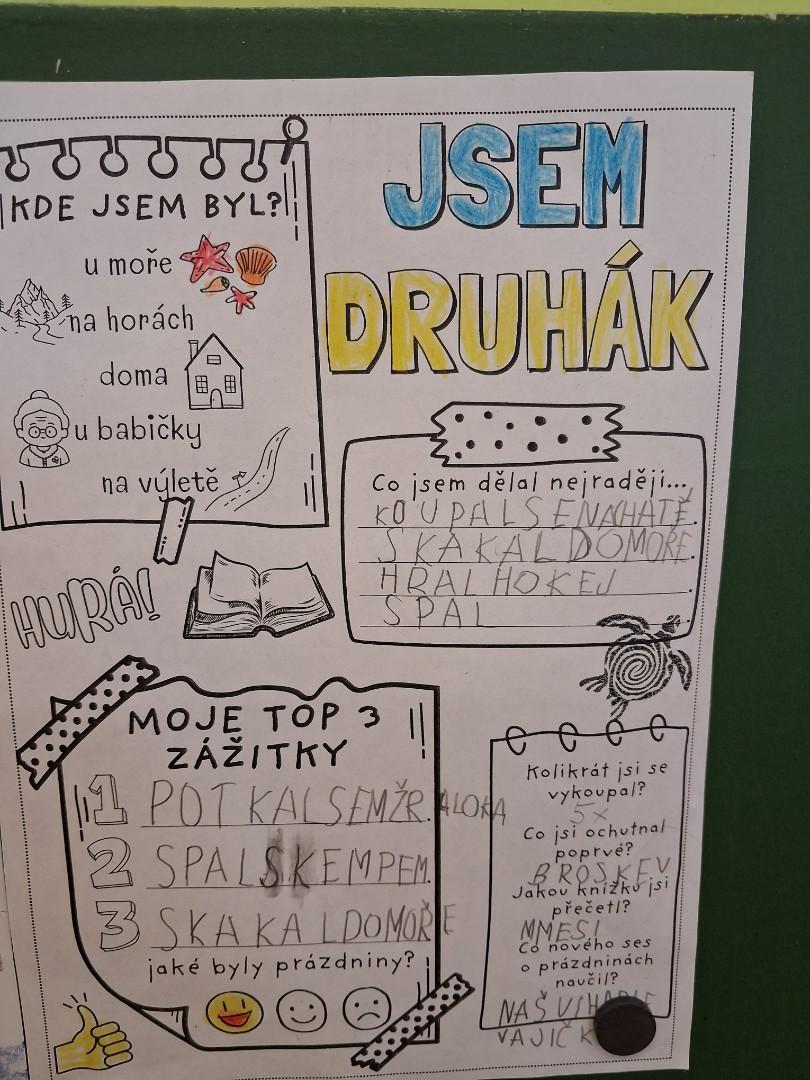 KDE JSEM BYL?
u moře
na horách
doma
u babičky
na výletě
JSEM
DRUHÁK
Co jsem dělal nejraději...
KOUPAL SE NA CHATĚ.
SKÁKAL DO MOŘE.
HRÁL HOKEJ.
SPAL
HURÁ!
MOJE TOP 3
ZÁŽITKY
1 POTKAL SEM ŽRALOKA
2 SPAL S KEMPEM.
3 SKAKAL DO MOŘE
jaké byly prázdniny?
Kolikrát jsi se
vykoupal?
5x
Co jsi ochutnal
poprvé?
BROSKEV
Jakou knížku jsi
přečetl?
MMESI
Co nového ses
o prázdninách
naučil?
VAJÍČK